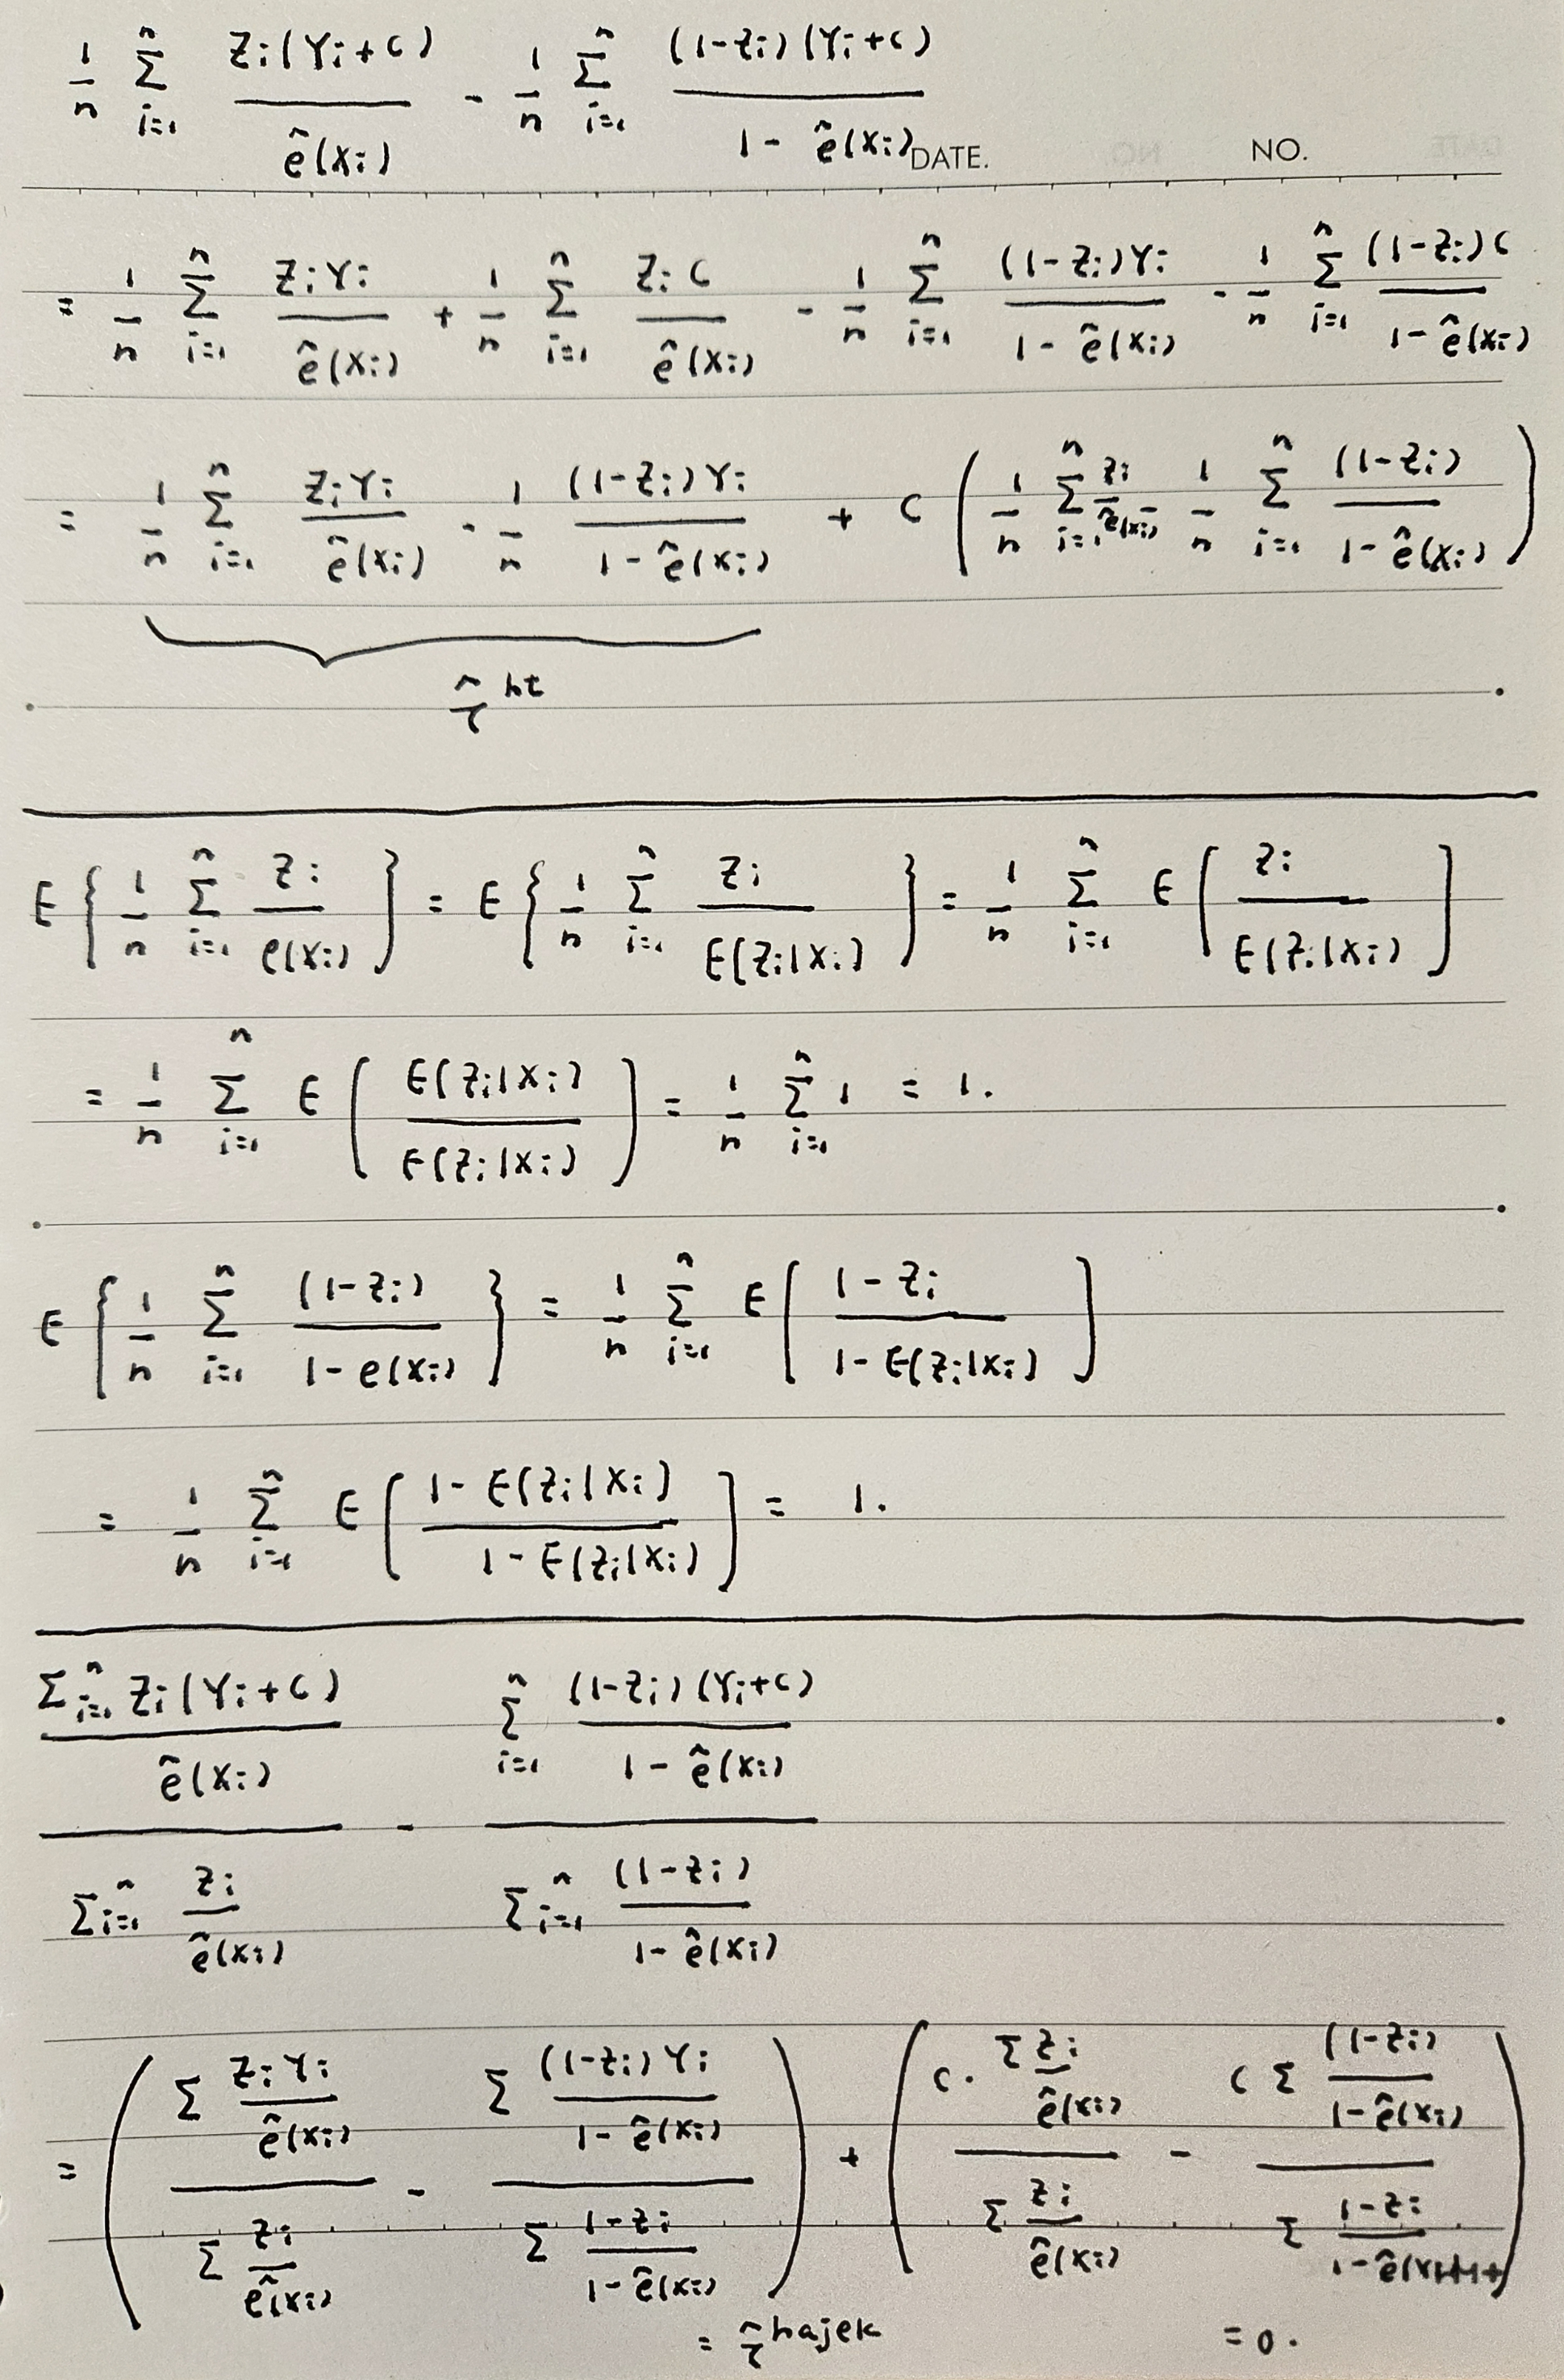 1/n Σ_{i=1}^{n} Z_i(Y_i+c) / ê(X_i) - 1/n Σ_{i=1}^{n} (1-Z_i)(Y_i+c) / (1-ê(X_i))
DATE. NO.
= 1/n Σ_{i=1}^{n} Z_iY_i / ê(X_i) + 1/n Σ_{i=1}^{n} Z_i c / ê(X_i) - 1/n Σ_{i=1}^{n} (1-Z_i)Y_i / (1-ê(X_i)) - 1/n Σ_{i=1}^{n} (1-Z_i)c / (1-ê(X_i))
= 1/n Σ_{i=1}^{n} Z_iY_i / ê(X_i) - 1/n (1-Z_i)Y_i / (1-ê(X_i)) + c ( 1/n Σ_{i=1}^{n} Z_i / ê(X_i) - 1/n Σ_{i=1}^{n} (1-Z_i) / (1-ê(X_i)) )
τ̂^{ht}
E{ 1/n Σ_{i=1}^{n} Z_i / e(X_i) } = E{ 1/n Σ_{i=1}^{n} Z_i / E(Z_i|X_i) } = 1/n Σ_{i=1}^{n} E[ Z_i / E(Z_i|X_i) ]
= 1/n Σ_{i=1}^{n} E[ E(Z_i|X_i) / E(Z_i|X_i) ] = 1/n Σ_{i=1}^{n} 1 = 1.
E{ 1/n Σ_{i=1}^{n} (1-Z_i) / (1-e(X_i)) } = 1/n Σ_{i=1}^{n} E[ (1-Z_i) / (1-E(Z_i|X_i)) ]
= 1/n Σ_{i=1}^{n} E[ (1-E(Z_i|X_i)) / (1-E(Z_i|X_i)) ] = 1.
[ Σ_{i=1}^{n} Z_i(Y_i+c) / ê(X_i) ] / [ Σ_{i=1}^{n} Z_i / ê(X_i) ] - [ Σ_{i=1}^{n} (1-Z_i)(Y_i+c) / (1-ê(X_i)) ] / [ Σ_{i=1}^{n} (1-Z_i) / (1-ê(X_i)) ]
= ( [ Σ Z_iY_i / ê(X_i) ] / [ Σ Z_i / ê(X_i) ] - [ Σ (1-Z_i)Y_i / (1-ê(X_i)) ] / [ Σ (1-Z_i) / (1-ê(X_i)) ] ) + ( [ c· Σ Z_i / ê(X_i) ] / [ Σ Z_i / ê(X_i) ] - [ c Σ (1-Z_i) / (1-ê(X_i)) ] / [ Σ (1-Z_i) / (1-ê(X_i)) ] )
= τ̂^{hajek} = 0.